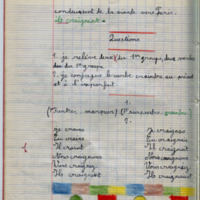 conduisent de la viande vers Paris.
Ils craignent.
Questions
1. je relève deux du 1er groupe, deux verbes
du 3e groupe
2. je conjugue le verbe craindre au présent
et à l'imparfait.
1.
2.
je crains
Tu crains
Il craint
Nous craignons
Vous craignez
Ils craignent
Je craignais
Tu craignais
Il craignait
Nous craignions
Vous craigniez
Ils craignaient